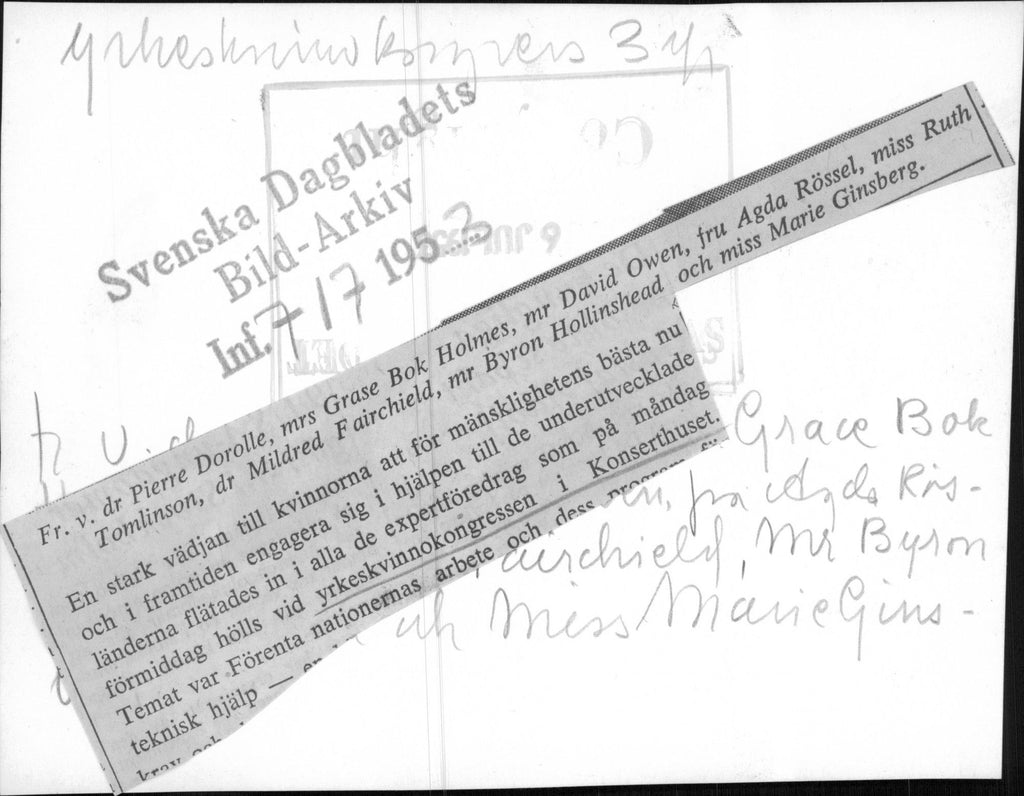 Yrkeskvinnokongress 3 yp
Svenska Dagbladets
Bild-Arkiv
Inf. 7/7 1953
6 JUL 1953
Fr. v. dr Pierre Dorolle, mrs Grase Bok Holmes, mr David Owen, fru Agda Rössel, miss Ruth
Tomlinson, dr Mildred Fairchield, mr Byron Hollinshead och miss Marie Ginsberg.
En stark vädjan till kvinnorna att för mänsklighetens bästa nu
och i framtiden engagera sig i hjälpen till de underutvecklade
länderna flätades in i alla de expertföredrag som på måndag
förmiddag hölls vid yrkeskvinnokongressen i Konserthuset.
Temat var Förenta nationernas arbete och dess program
teknisk hjälp —
krav och
Grace Bok
en, fru Agda Rös-
airchield, Mr Byron
och Miss Marie Gins-